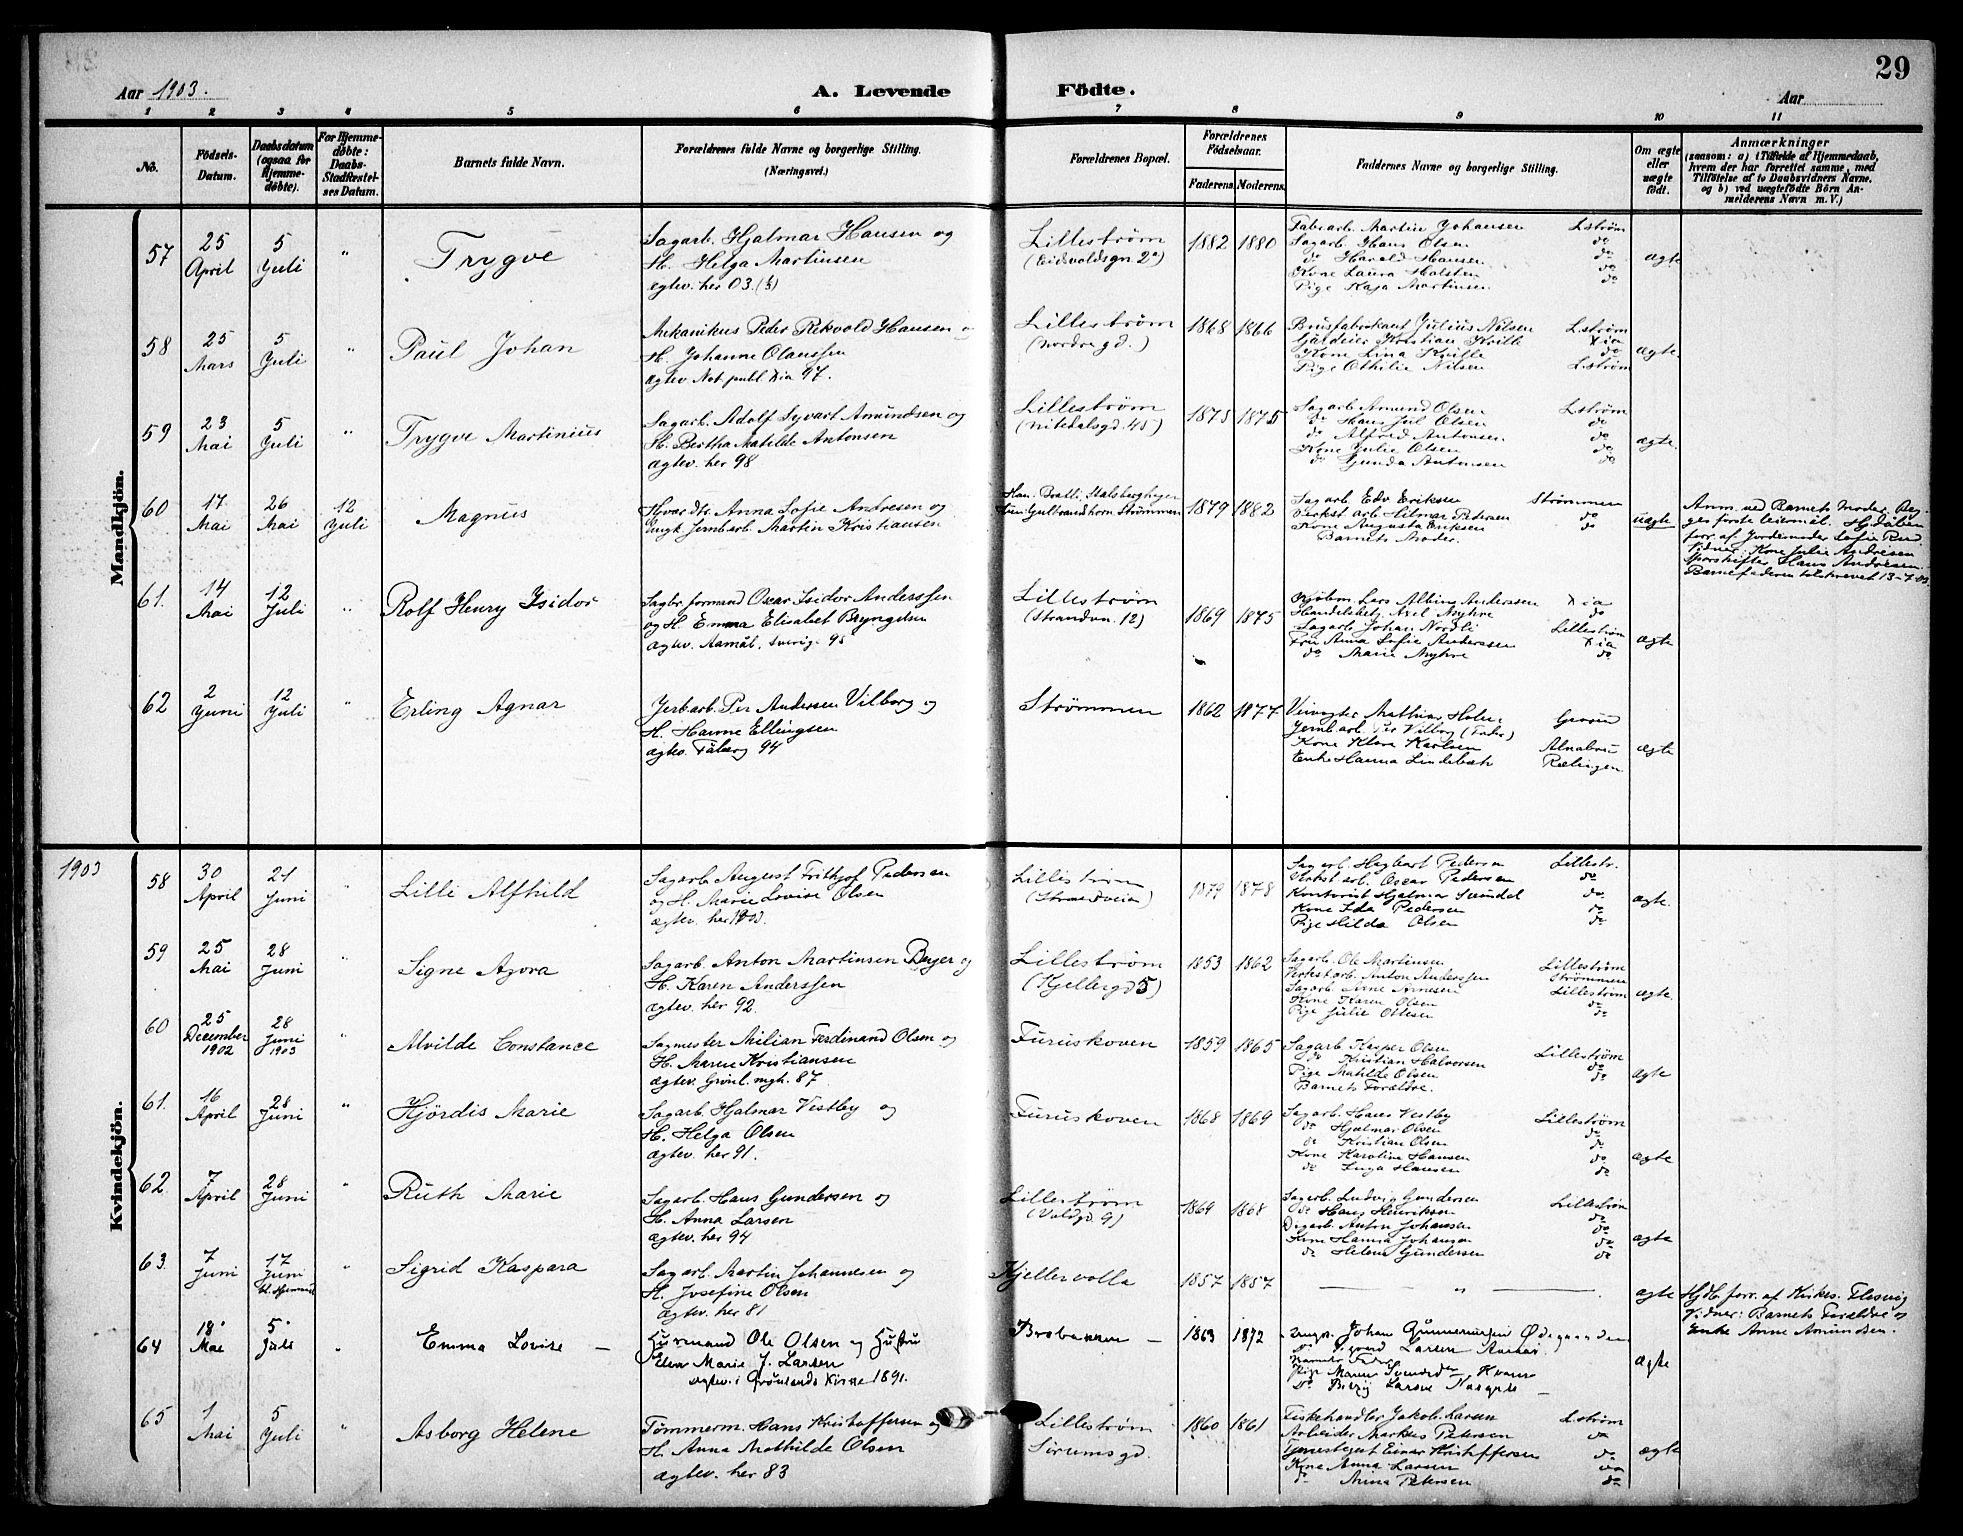 29
Aar 1903.
A. Levende Fødte.
Aar
1 2 3 4 5 6 7 8 9 10 11
No.
Födsels-Datum.
Daabsdatum (ogsaa for Hjemmedøbte).
For Hjemmedøbte: Daabs-Stadfæstelses Datum.
Barnets fulde Navn.
Forældrenes fulde Navne og borgerlige Stilling. (Næringsvei.)
Forældrenes Bopæl.
Forældrenes Födselsaar.
Faderens. Moderens.
Faddernes Navne og borgerlige Stilling.
Om ægte eller uægte født.
Anmærkninger
(saasom: a) i Tilfælde af Hjemmedaab, hvem der har forrettet samme, med Tilføielse af to Daabsvidners Navne, og b) ved uægtefødte Börn Anmelderens Navn m. V.)
Mandkjön.
57 25 April 5 Juli " Trygve
Sagarb. Hjalmar Hansen og
H. Helga Martinsen
ægtev. her 03.
Lillestrøm
1882 1880
Fabrarb. Martin Johansen Lstrøm
Sagarb. Hans Olsen do
do Harald Hansen do
Kone Laura Holsten do
Pige Kaja Martinsen do
ægte
58 25 Mars 5 Juli " Paul Johan
Mekanikus Peder Rekvold Hansen
H. Johanne Olaussen
ægtev. Not. publ. Xia 97.
Lillestrøm
(Nordregd.)
1868 1866
Brusfabrikant Julius Nilsen Lstrøm
Gårdeier Kristian Kville Xia
Kone Lina Kville do
Pige Othilie Nilsen Lstrøm
ægte
59 23 Mai 5 Juli " Trygve Martinius
Sagarb. Adolf Syvart Amundsen og
H. Bertha Matilde Antonsen
ægtev. her 98
Lillestrøm
(Nitedalsgd. 45)
1875 1875
Sagarb. Amund Olsen Lstrøm
do Hans Jul Olsen do
do Alfred Antonsen do
Kone Julie Olsen do
do Gunda Antonsen do
ægte
60 17 Mai 26 Mai 12 Juli Magnus
Hvardtr. Anna Sofie Andresen og
Ungk. Jernbarb. Martin Kristiansen
Strømmen
1879 1882
Sagarb. Edv Eriksen Strømmen
Verkst arb. Hilmar Pedersen do
Kone Augusta Eriksen do
Barnets Moder.
uægte
Anm. ved Barnets Moder. Beg-
ges første leiermål. Hjdåben
forr. af Jordemoder Sofie Rud
Vidner: Kone Julie Andresen
Sporskifter Hans Andresen.
Barnefaderen tilskrevet 13-7-03.
61. 14 Mai 12 Juli " Rolf Henry Isidor
Sagbr. formand Oscar Isidor Anderssen
og H. Emma Elisabet Bryngelsen
ægtev. Aamål, Sverig. 95
Lillestrøm
(Strandvn. 12)
1869 1875
Kjøbm. Lars Albin Anderssen Xia
Handelsbetj. Axel Myhre do
Sagarb. Johan Nordli Lillestrøm
Fru Anna Sofie Anderssen Xia
do Marie Myhre do
ægte
62 2 Juni 12 Juli " Erling Agnar
Jerbarb. Per Andersen Vilborg og
H. Hanne Ellingsen
ægtev. Fåberg 94
Strømmen
1862 1877
Veivogter Mathias Holm
Jernbarb. Per Vilborg (Fader)
Kone Klara Karlsen Alnabru
Enke Hanna Lindebæk Rælingen
ægte
1903
Kvindekjön.
58 30 April 21 Juni " Lilli Alfhild
Sagarb. August Frithjof Pedersen
og H. Marie Lovise Olsen
ægtev. her 1900.
Lillestrøm
(Strandveien)
1879 1878
Sagarb. Hagbart Pedersen Lillestr.
Verkst arb. Oscar Pedersen do
Kontorist Hjalmar Sundel do.
Kone Ida Pedersen do
Pige Hilda Olsen do
ægte.
59 25 Mai 28 Juni " Signe Agora
Sagarb. Anton Martinsen Berger og
H. Karen Anderssen
ægtev. her 92.
Lillestrøm
(Kjellergd 5)
1853 1862
Sagarb. Ole Martinsen Lillestrøm
Verkstarb. Anton Anderssen Strømmen
Sagarb. Arne Arnesen Lillestrøm
Kone Karen Olsen do
Pige Julie Ottesen do
ægte.
60 25 December 1902 28 Juni 1903 " Alvilde Constance
Sagmester Milian Ferdinand Olsen og
H. Maren Kristiansen
ægtev. Grønl. mgh. 87.
Furuskoven
1859 1865
Sagarb. Kasper Olsen Lillestrøm
do Kristian Halvorsen do
Pige Matilde Olsen do
Barnets Forældre.
ægte
61. 16 April 28 Juni " Hjördis Marie
Sagarb. Hjalmar Vestby og
H. Helga Olsen
ægtev. her 91.
Furuskoven
1868 1869
Sagarb. Hans Vestby Lillestrøm
do Hjalmar Olsen do
do Kristian Olsen do
Kone Karoline Hansen do
do Inga Hansen do
ægte
62. 7 April 28 Juni " Ruth Marie
Sagarb. Hans Gundersen og
H. Anna Larsen
ægtev. her 94
Lillestrøm
(Voldgd 9)
1869 1868
Sagarb. Ludvig Gundersen Lillestrøm
do Hans Henriksen do
Anton Johansen do
Kone Hanna Johansen do
do Helene Gundersen do
ægte
63. 7 Juni 17 Juni " Sigrid Kaspara
Sagarb. Martin Johannesen og
H. Josefine Olsen
ægtev. her 81
Kjellervolla
1857 1857
— " —
ægte
Hjdb. forr. af Kirkes. Flesvig
Vidner: Barnets Forældre og
Enke Anne Amundsen.
64 18 Mai 5 Juli " Emma Lovise —
Husmand Ole Olsen og Hustru
Elen Marie J. Larsen
ægtev. i Grønlands Kirke 1891.
Brobakken —
1863 1872
Ungk. Johan Gunnerius
do Sigvard Larsen
Pige Maren
do Larsen
ægte
65 1 Mai 5 Juli " Asborg Helene
Tømmerm. Hans Kristoffersen og
H. Anna Mathilde Olsen
ægtev. her 83
Lillestrøm
Sørumsgd.
1860 1861
Fiskehandler Jakob Larsen Lstrøm
Arbeider Markus Petersen do
Tjenestegut Einar Kristoffersen do
Kone Anna Larsen do
do Mina Petersen do
ægte